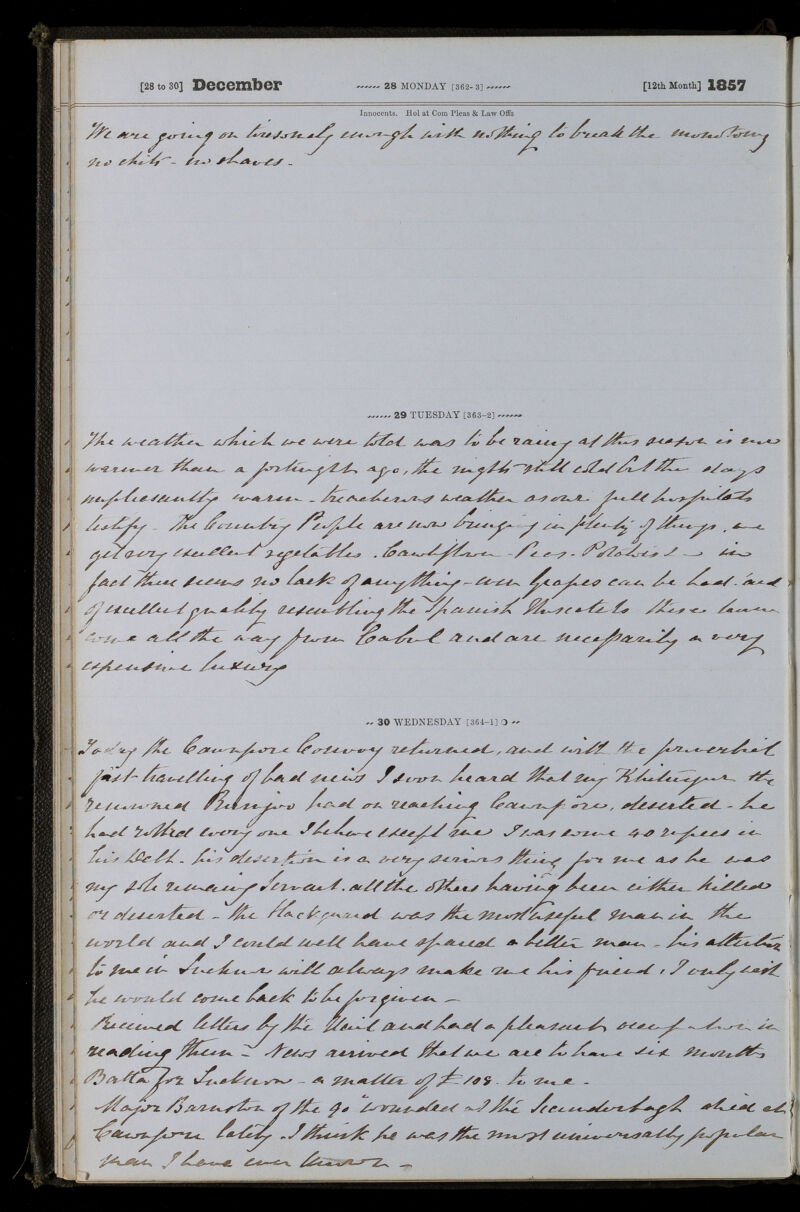 [28 to 30] December ...... 28 MONDAY [362-3] ...... [12th Month] 1857
Innocents. Hol at Com Pleas & Law Offs
We are going on tiresomely enough with nothing to break the monotony
no chits - no shaves -
...... 29 TUESDAY [363-2] ......
The weather which we were told was to be rainy at this season is now
warmer than a fortnight ago, the nights still cold but the days
unpleasantly warm - treacherous weather as our full hospitals
testify - The Country People are now bringing in plenty of things. we
get very excellent vegetables. Cauliflower - Peas - Potatoes - in
fact there seems no lack of anything - even Grapes can be had. and
of excellent quality resembling the Spanish Muscatels these
come all the way from Cabul and are necessarily a very
expensive luxury
.. 30 WEDNESDAY [364-1] O ..
Today the Cawnpore Convoy returned, and with the proverbial
fast travelling of bad news I soon heard that my Khitmgur the
renowned had on reaching Cawnpore, deserted - he
had robbed every one I believe except me I was some 40 rupees in
his debt - his desertion is a very serious thing for me as he was
my sole remaing Servant. all the others having been either killed
or deserted - the blackguard was the most useful man in the
world and I could well have spared a better man - his attention
to me in Lucknow will always make me his friend, I only wish
he would come back to be forgiven -
Received letters by the Mail and had a pleasant occupation in
reading them - News arrived that we are to have six months
Batta for Lucknow - a matter of £108. to me.
Major Barnston of the 90th wounded at the Secunderbagh died at
Cawnpore lately. I think he was the most universally popular
man I have ever known -